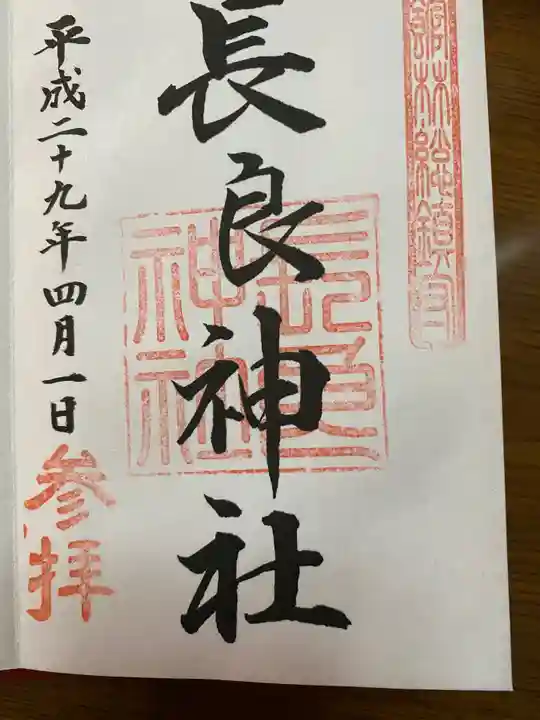 舘林総鎮守
長良神社
長良神社
平成二十九年四月一日
参拝